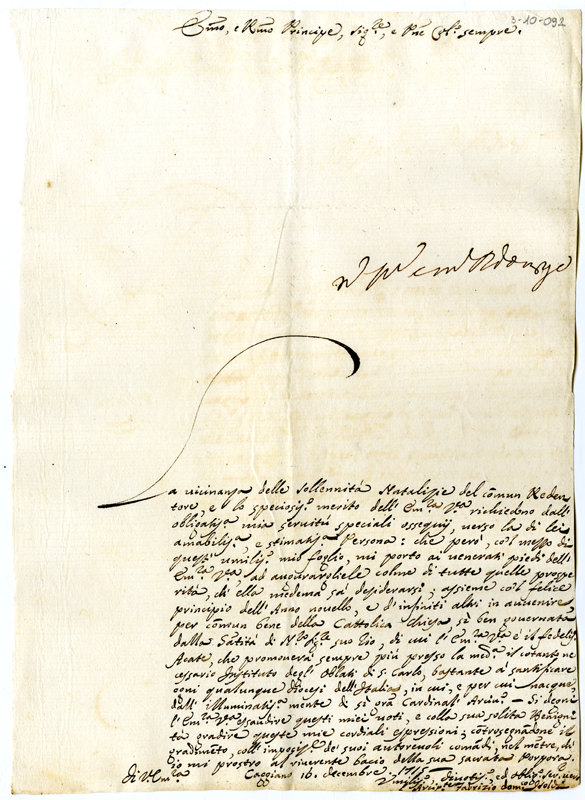 3-10-092
Em̃o, e Rm̃o Principe, Sig.re, e Pne Col.o sempre.
La vicinanza delle sollennità Natalizie del cōmun Reden
tore, e lo speciosis.o merito dell' Em.za V.ra richiedono dall'
obligatis.a mia servitù speciali ossequij verso la di lei
amabilis.a, e stimatis.a Persona: che però, co'l mezzo di
questo umilis.o mio foglio, mi porto ai venerati piedi dell'
Em.za V.ra ad augurargliele colme di tutte quelle prospe
rità, ch' ella medema sà desiderarsi, assieme co'l felice
principio dell' Anno novello, e d' infiniti altri in avvenire,
per cōmun bene della Cattolica Chiesa sì ben governata
dalla Santità di N.ro Sig.re suo Zio, di cui l' Em.za V.ra è il fedelis.o
Acate, che promoverà sempre più presso la med.a il cotanto ne
cessario Instituto degl' Oblati di S. Carlo, bastante à santificare
ogni qualunque Diocesi dell' Italia, in cui, e per cui nacque,
dall' illuminatis.a mente di si grā Cardinal
Si degni
l' Em.za V.ra essaudire questi miei voti, e colla sua solita Benigni
tà gradire queste mie cordiali espressioni; cōtrosegnādone il
gradimēto, coll' imposiz.e de' suoi autorevoli comādi; nel mētre, ch'
io mi prostro al riverente bacio della sua sacrata Porpora.
di V. Em.za Caggiano 16. decembre 1725
Umilis.o, divotis.o, ed oblig.o ser. vero